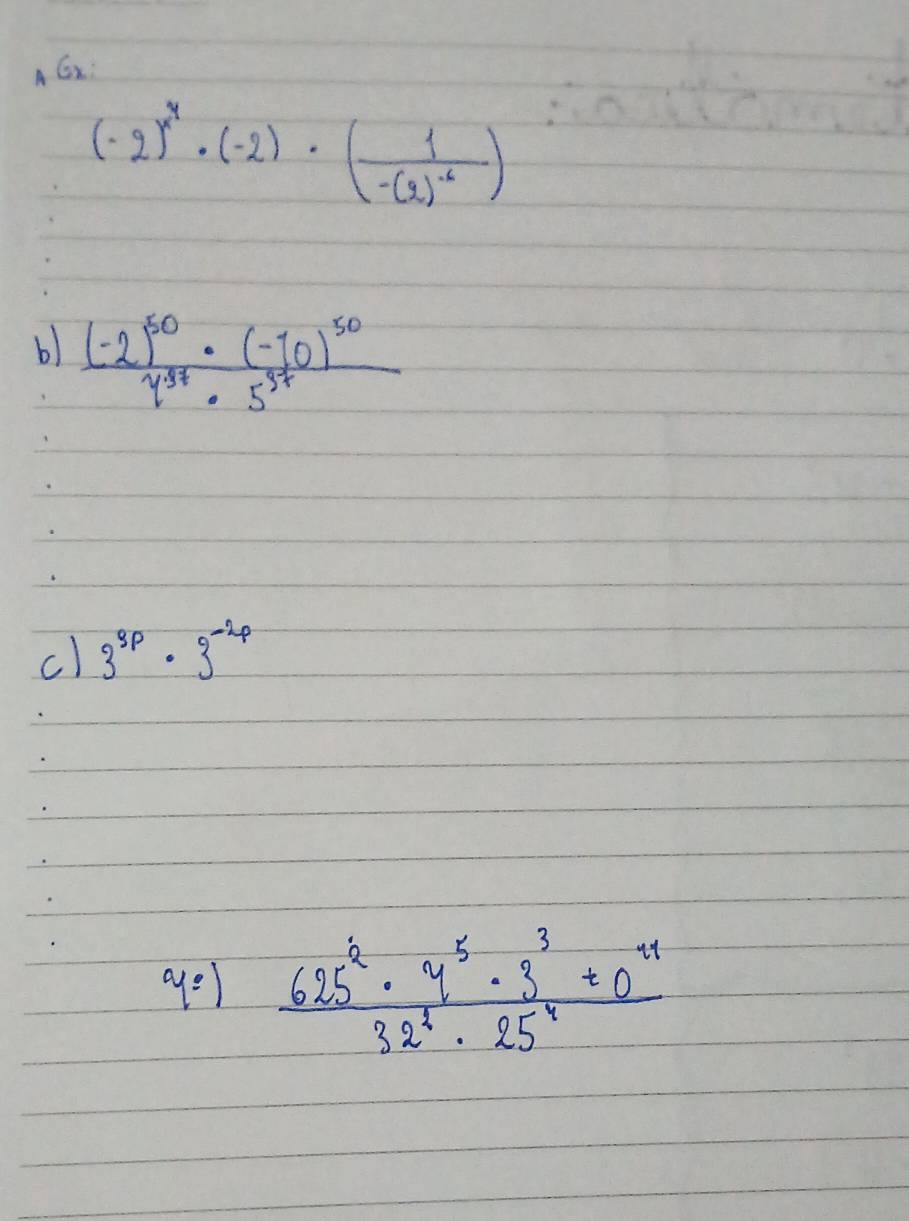 A Ex:
(-2)⁴ · (-2) · (1 / -(2)⁻⁶)
b) (-2)⁵⁰ · (-10)⁵⁰
4³⁷ · 5³⁷
c) 3⁹ᵖ · 3⁻²ᵖ
4º) 625² · 4⁵ · 3³ + 0¹¹
32² · 25⁴